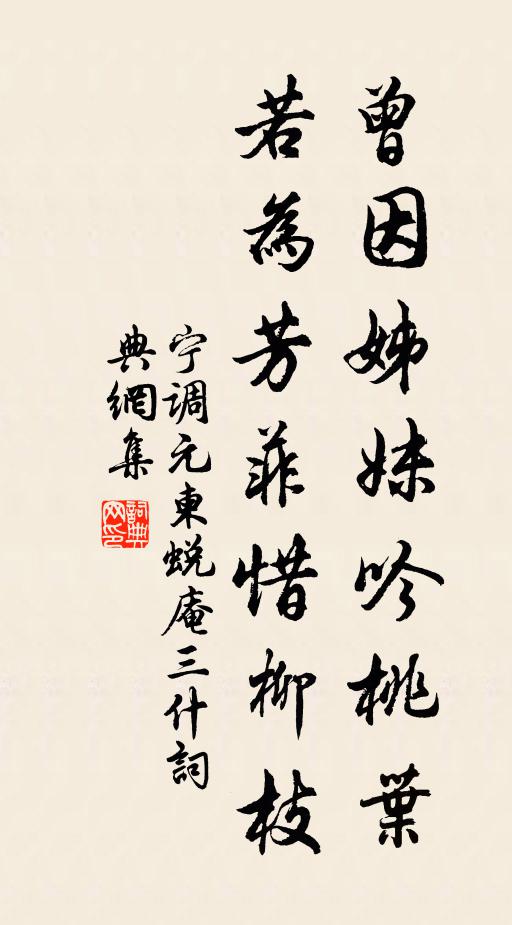 曾因姊妹吟桃葉
若為芳菲惜柳枝
宁調元東蛻庵三什詞
典網集
詞典網印